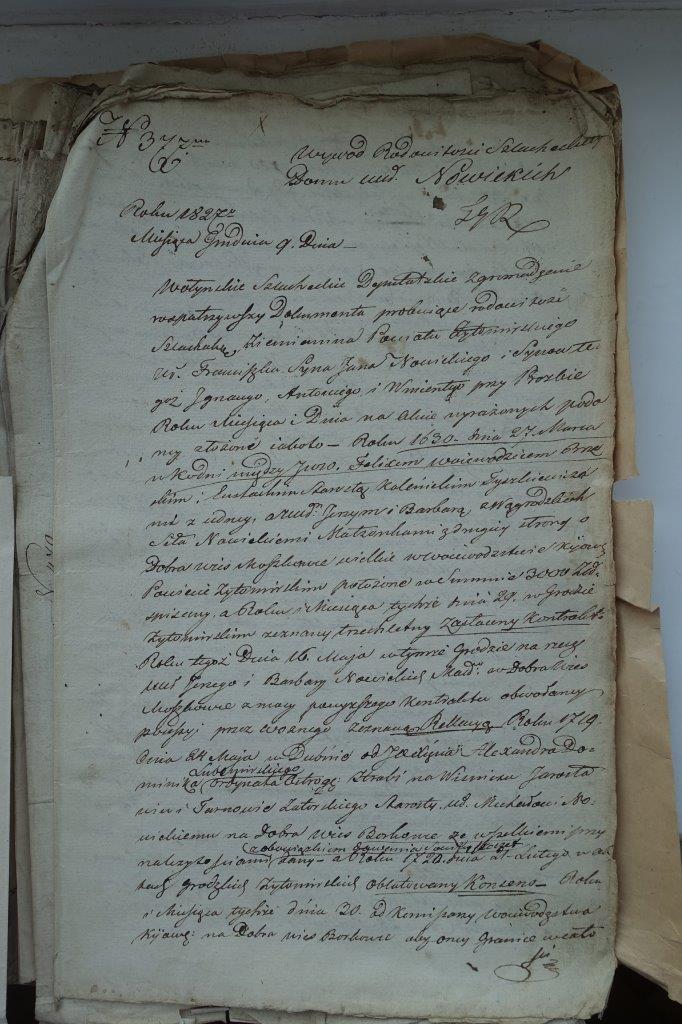 N 377m
Wywód Rodowitości Szlacheckiey
Domu uród. Nowickich
Roku 1827
Miesiąca Grudnia 9. Dnia
Wołynskie Szlacheckie Deputatskie zgromadzenie
rospatrzywszy Dokumenta probuiące rodowitość
Szlachcka, Ziemianina Powiatu Żytomirskiego
Ur. Franciszka Syna Jana Nowickiego i Synow te-
goż Ignacego, Antoniego i Wincentego przy Prozbie
Roku Miesiąca i Dnia na Akcie wyrażonych poda
ney złożone iakoto – Roku 1630. dnia 27. Marca
w Kodni między Jwo. Felixem woiewodzicem Brze
skim i Eustachim Starostą Tyszkiewicza
mi z iedney, a Jerzym i Barbarą z
Nowickiemi Małżonkami z drugiey strony o
Dobra wies Moszkowce wielkie w woiewodztwie Kijow:
Powiecie Żytomirskim położone w Summie 3000 Zł.
spisany, a Roku i Miesiąca tychże dnia 29. w Grodzie
Żytomirskim zeznany trzechletny zastawny Kontrakt –
Roku tegoż Dnia 16. Maja w tymże Grodzie na rzecz
Jerzego i Barbary Nowickich Małż. w Dobra Wies
Moszkowce z mocy powyższego Kontraktu obwołaney
possesyi przez woznego zeznaną Rellacyą Roku 1719.
Dnia Maja w Dubnie od Alexandra Do-
minika Lubomirskiego Ordynata Ostrog: Hrabi na Wisniczu Jarosła
wiu i Tarnowie Zatorskiego Starosty, ur. Michałowi No-
wickiemu na Dobra Wies Borkowce ze wszelkiemi przy
należytościami z obowiązkiem dany – a Roku 1720. dnia Lutego w ak
tach grodzkich Żytomirskich oblatowany Konsens – Roku
i Miesiąca tychże dnia 20. od Komissarzy Woiewodztwa
Kijows: na Dobra wies Borkowce aby oney Granice w cało